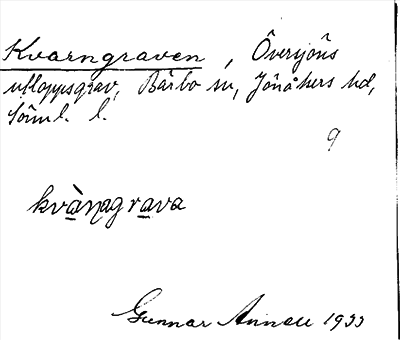 Kvarngraven, Översjöns
utloppsgrav, Bärbo sn, Jönåkers hd,
Sörml. l.
9
kvàṇagrava
Gunnar Annell 1933